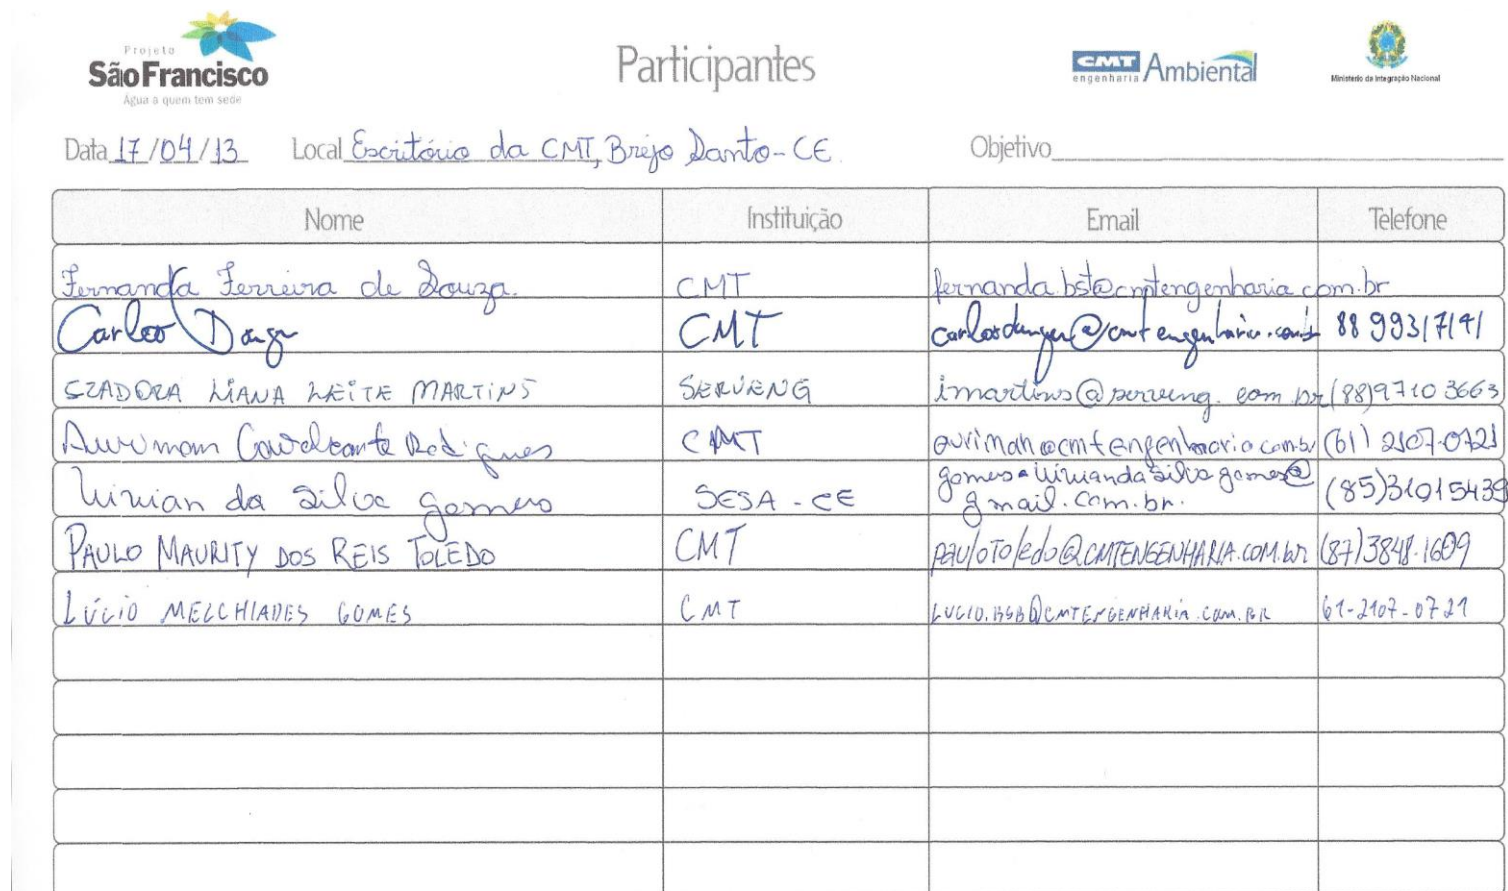 Projeto
São Francisco
Água a quem tem sede
Participantes
CMT engenharia Ambiental
Ministério da Integração Nacional
Data 17/04/13 Local Escritório da CMT, Brejo Santo-CE Objetivo
Nome Instituição Email Telefone
Fernanda Ferreira de Souza. CMT fernanda.bst@cmtengenharia.com.br
Carlos CMT 88 99317141
IZADORA LIANA LEITE MARTINS SERVENG imartins@serveng.com.br (88)9710 3663
Aurimam Cavalcante Rodrigues CMT auriman@cmtengenharia.com.br (61) 2107-0721
Vivian da Silva Gomes SESA - CE viviandasilvagomes@
gmail.com.br. (85)31015439
PAULO MAURITY DOS REIS TOLEDO CMT pauloToledo@CMTENGENHARIA.COM.br (87)3848.1609
LÚCIO MELCHIADES GOMES CMT LUCIO.BSB@CMTENGENHARIA.COM.BR 61-2107-0721